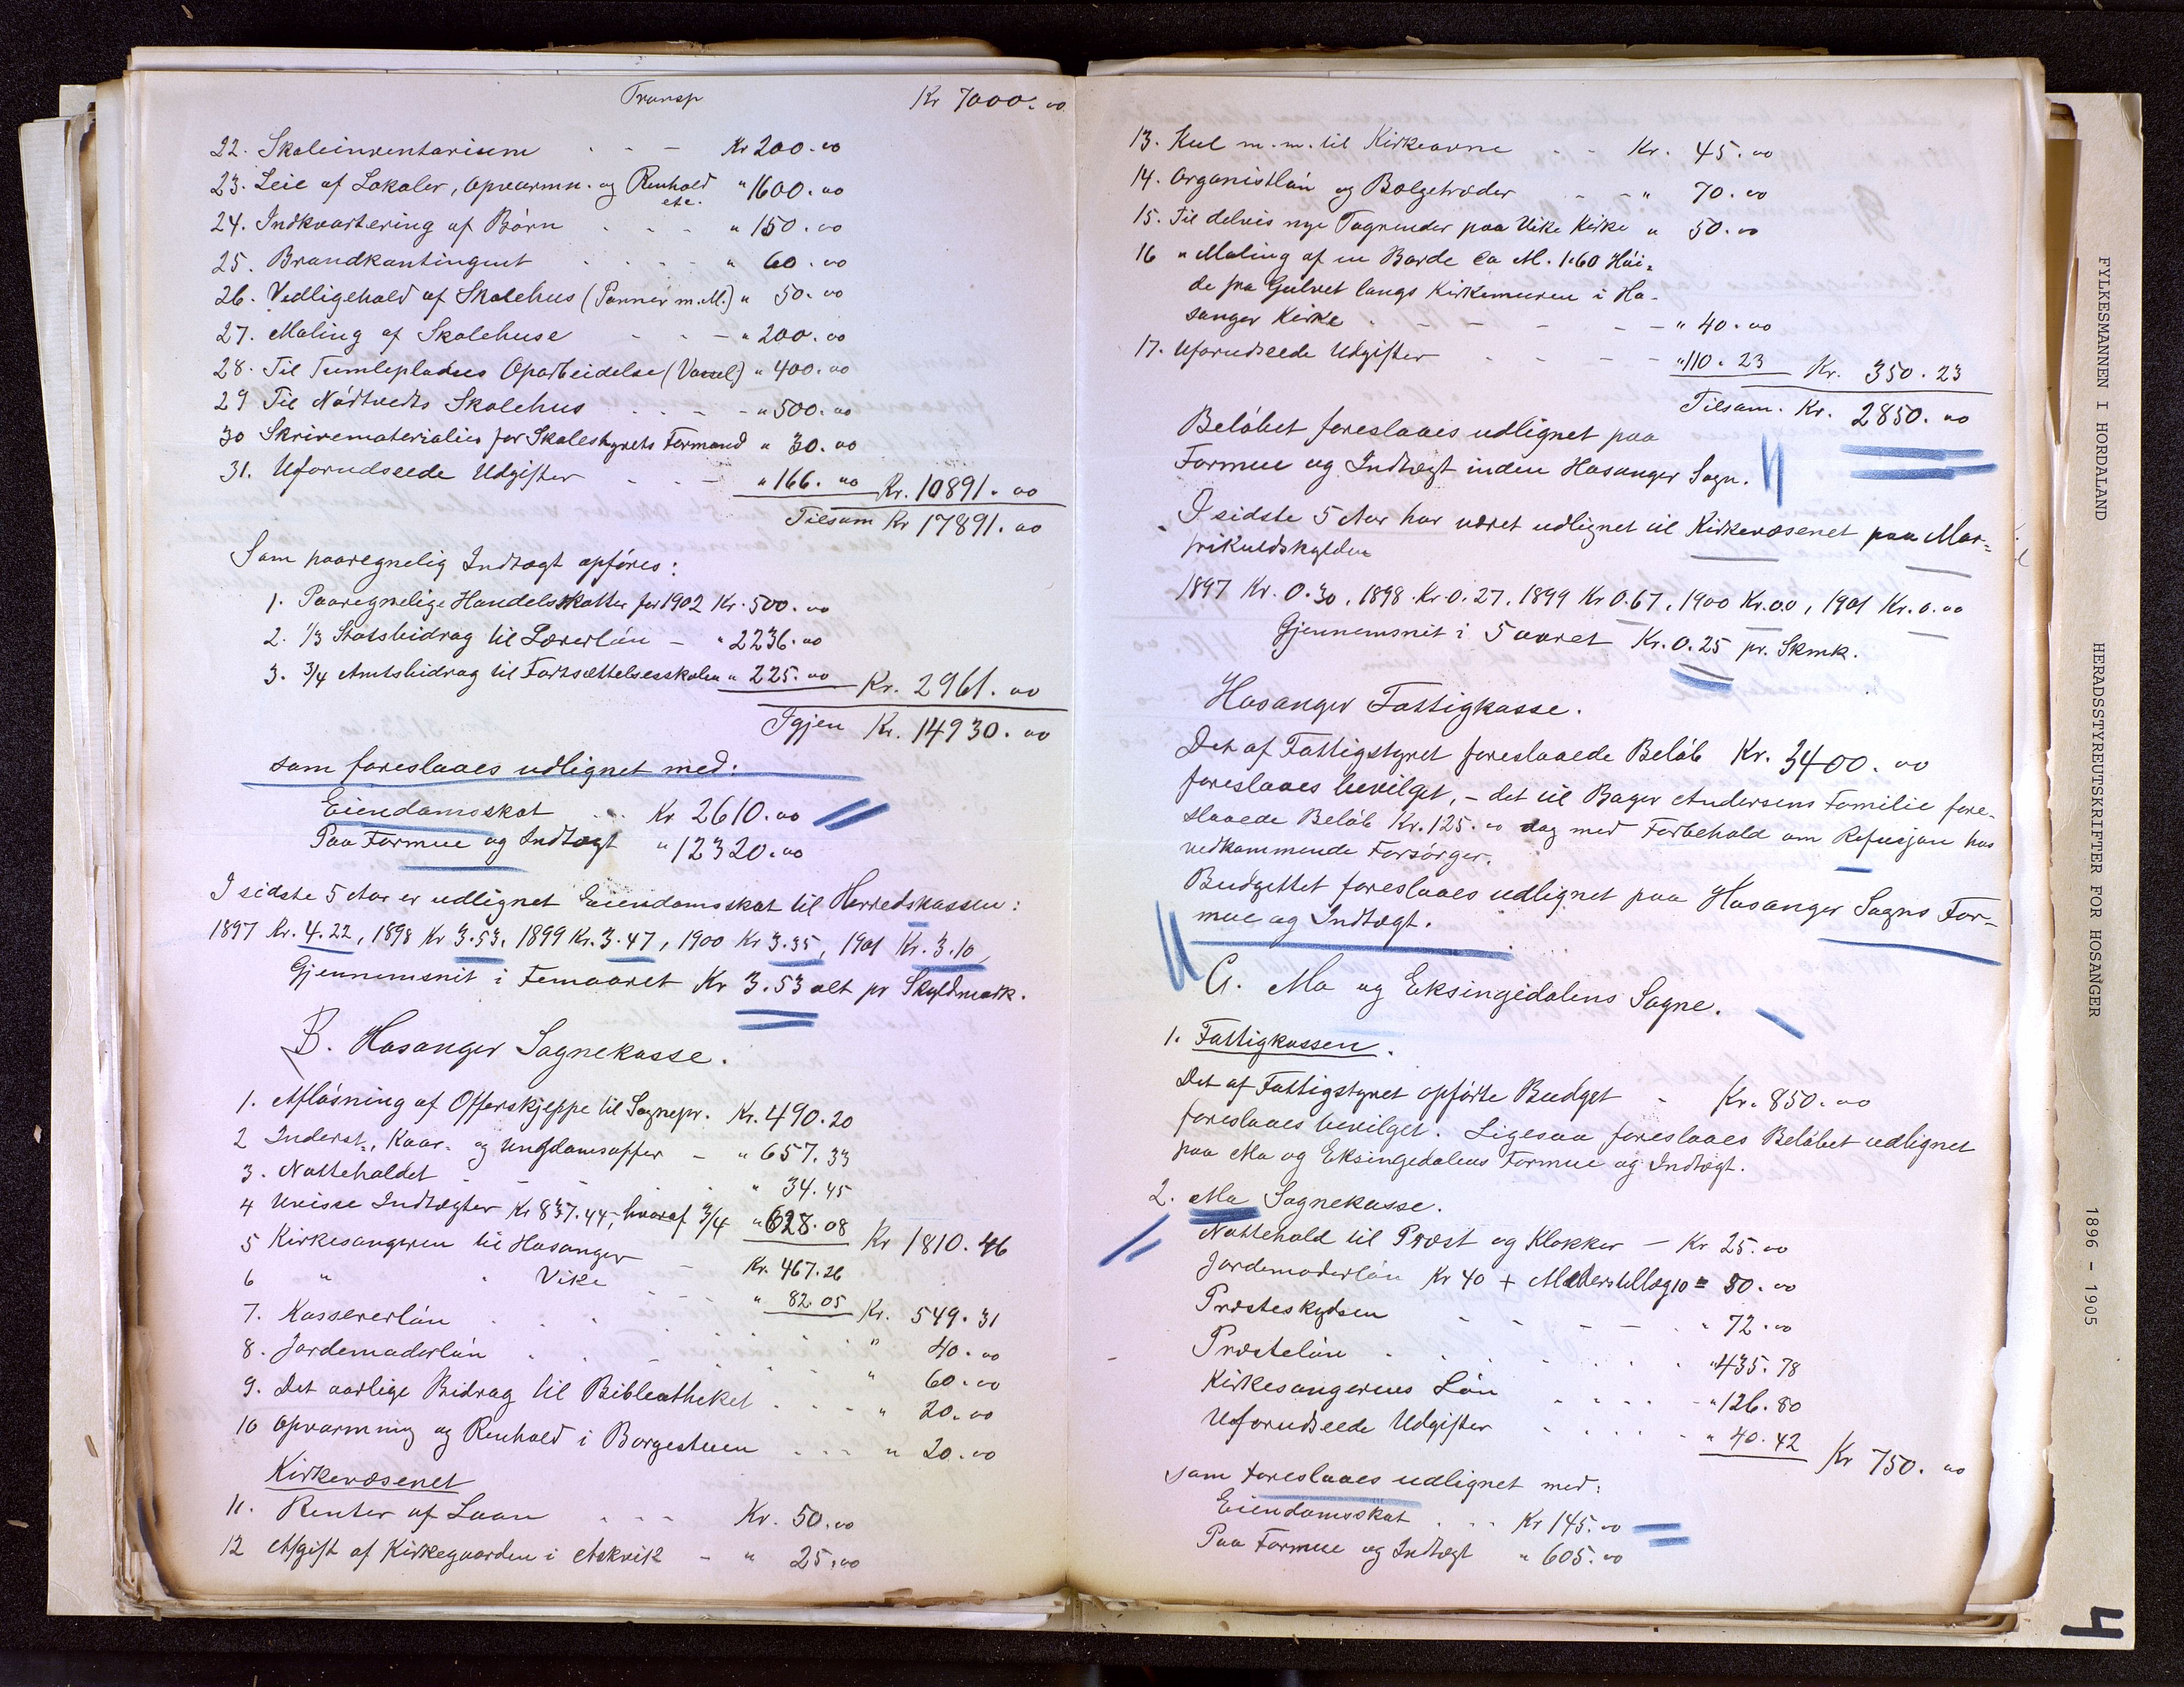 Transp Kr 7000.00
22. Skoleinventarium - - - Kr 200.00
23. Leie af Lokaler, Opvarmn. og Renhold etc. " 1600.00
24. Indkvartering af Börn - - - " 150.00
25. Brandkontingent - - - " 60.00
26. Vedligehold af Skolehus (Panner m.M.) " 50.00
27. Maling af Skolehuse - - - " 200.00
28. Til Tumlepladses Oparbeidelse (Vassel) " 400.00
29 Til Nödtvedts Skolehus - - - " 500.00
30 Skrivematerialier for Skolestyrets Formand " 30.00
31. Uforudseede Udgifter - - - " 166.00 Kr. 10891.00
Tilsam Kr 17891.00
Som paaregnelig Indtægt opföres:
1. Paaregnelige Handelsskatter for 1902 Kr. 500.00
2. 1/3 Statsbidrag til Lærerlön - " 2236.00
3. 3/4 Amtsbidrag til Fortsættelsesskolen " 225.00 Kr. 2961.00
Igjen Kr. 14930.00
som foreslaaes udlignet med:
Eiendomsskat . . . Kr 2610.00
Paa Formue og Indtægt " 12320.00
I sidste 5 Aar er udlignet Eiendomsskat til Herredskassen:
1897 Kr. 4.22, 1898 Kr 3.53, 1899 Kr. 3.47, 1900 Kr 3.35, 1901 Kr. 3.10,
Gjennemsnit i Femaaret Kr 3.53 alt pr Skyldmark.
B. Hosanger Sognekasse.
1. Aflösning af Offerskjeppe til Sognepr. Kr. 490.20
2 Inderst-, Kaar- og Ungdomsoffer - " 657.33
3. Natteholdet - - - " 34.45
4 Uvisse Indtægter Kr 837.44, hvoraf 3/4 " 628.08 Kr 1810.46
5 Kirkesangeren til Hosanger - Kr. 467.26
6 " " Vike - - - " 82.05 Kr. 549.31
7. Kassererlön . . . " 40.00
8. Jordemoderlön . . . " 60.00
9. Det aarlige Bidrag til Bibliotheket . . . " 20.00
10 Opvarmning og Renhold i Borgestuen . . . " 20.00
Kirkevæsenet
11. Renter af Laan - - - Kr. 50.00
12 Afgift af Kirkegaarden i Askvik - " 25.00
13. Kul m.m. til Kirkeovne - - Kr. 45.00
14. Organistlön og Bælgetræder - - " 70.00
15. Til delvis nye Tagrender paa Vike Kirke " 50.00
16 " Maling af en Borde ca M. 1.60 Höi=
de fra Gulvet langs Kirkemuren i Ho-
sanger Kirke - - - - " 40.00
17. Uforudseede Udgifter - - - " 110.23 Kr. 350.23
Tilsam. Kr. 2850.00
Belöbet foreslaaes udlignet paa
Formue og Indtægt inden Hosanger Sogn.
I sidste 5 Aar har været udlignet til Kirkevæsenet paa Mar=
trikulskylden
1897 Kr. 0.30, 1898 Kr. 0.27, 1899 Kr 0.67, 1900 Kr. 0.0, 1901 Kr. 0.00
Gjennemsnit i 5 aaret Kr. 0.25 pr. Skmk.
Hosanger Fattigkasse.
Det af Fattigstyret foreslaaede Belöb Kr. 3400.00
foreslaaes bevilget, - det til Bager Andersens Familie fore-
slaaede Belöb Kr. 125.00 dog med Forbehold om Refusjon hos
vedkommende Forsörger.
Budgettet foreslaaes udlignet paa Hosanger Sogns For-
mue og Indtægt.
C. Mo og Eksingedalens Sogne.
1. Fattigkassen.
Det af Fattigstyret opförte Budget - Kr. 850.00
foreslaaes bevilget. Ligesaa foreslaaes Belöbet udlignet
paa Mo og Eksingedalens Formue og Indtægt.
2. Mo Sognekasse.
Nattehold til Præst og Klokker - Kr 25.00
Jordemoderlön Kr 40 + Alderstillæg 10 = 50.00
Præsteskydsen - - - - " 72.00
Præstelön . . . . " 435.78
Kirkesangerens Lön . . . . " 126.80
Uforudseede Udgifter . . . . " 40.42 Kr 750.00
som foreslaaes udlignet med:
Eiendomsskat . . . Kr 145.00
Paa Formue og Indtægt " 605.00
FYLKESMANNEN I HORDALAND HERADSSTYREUTSKRIFTER FOR HOSANGER 1896 - 1905
4